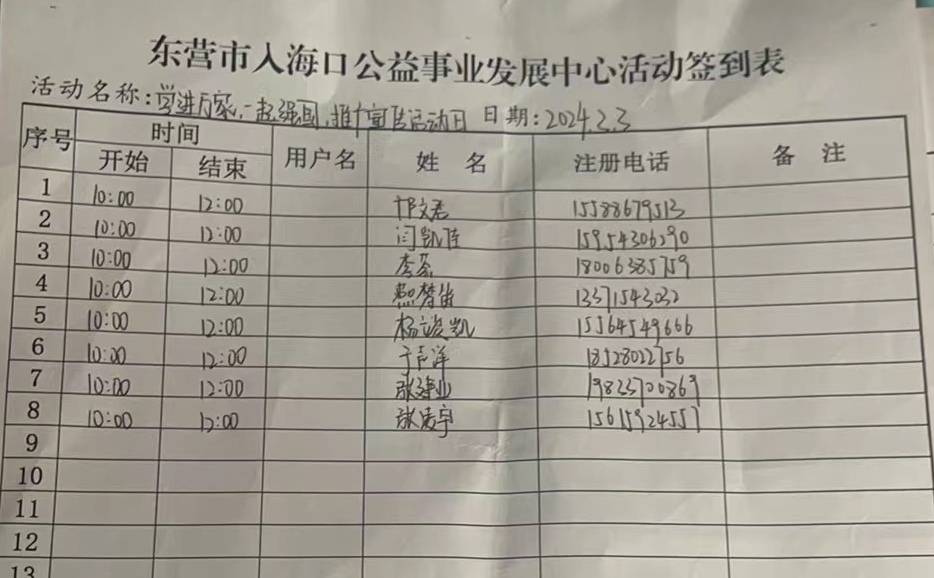 东营市入海口公益事业发展中心活动签到表
活动名称:学进万家,一起强国,推广宣传活动日 日期:2024.2.3
序号 时间 用户名 姓 名 注册电话 备 注
开始 结束
1 10:00 12:00 15588679513
2 10:00 12:00 闫凯佳 15954306290
3 10:00 12:00 李 18006385759
4 10:00 12:00 梦笛 13371543032
5 10:00 12:00 杨凯 15564549666
6 10:00 12:00 于洋 18528022756
7 10:00 12:00 张建业 19823700869
8 10:00 12:00 张宇 15615924557
9
10
11
12
13